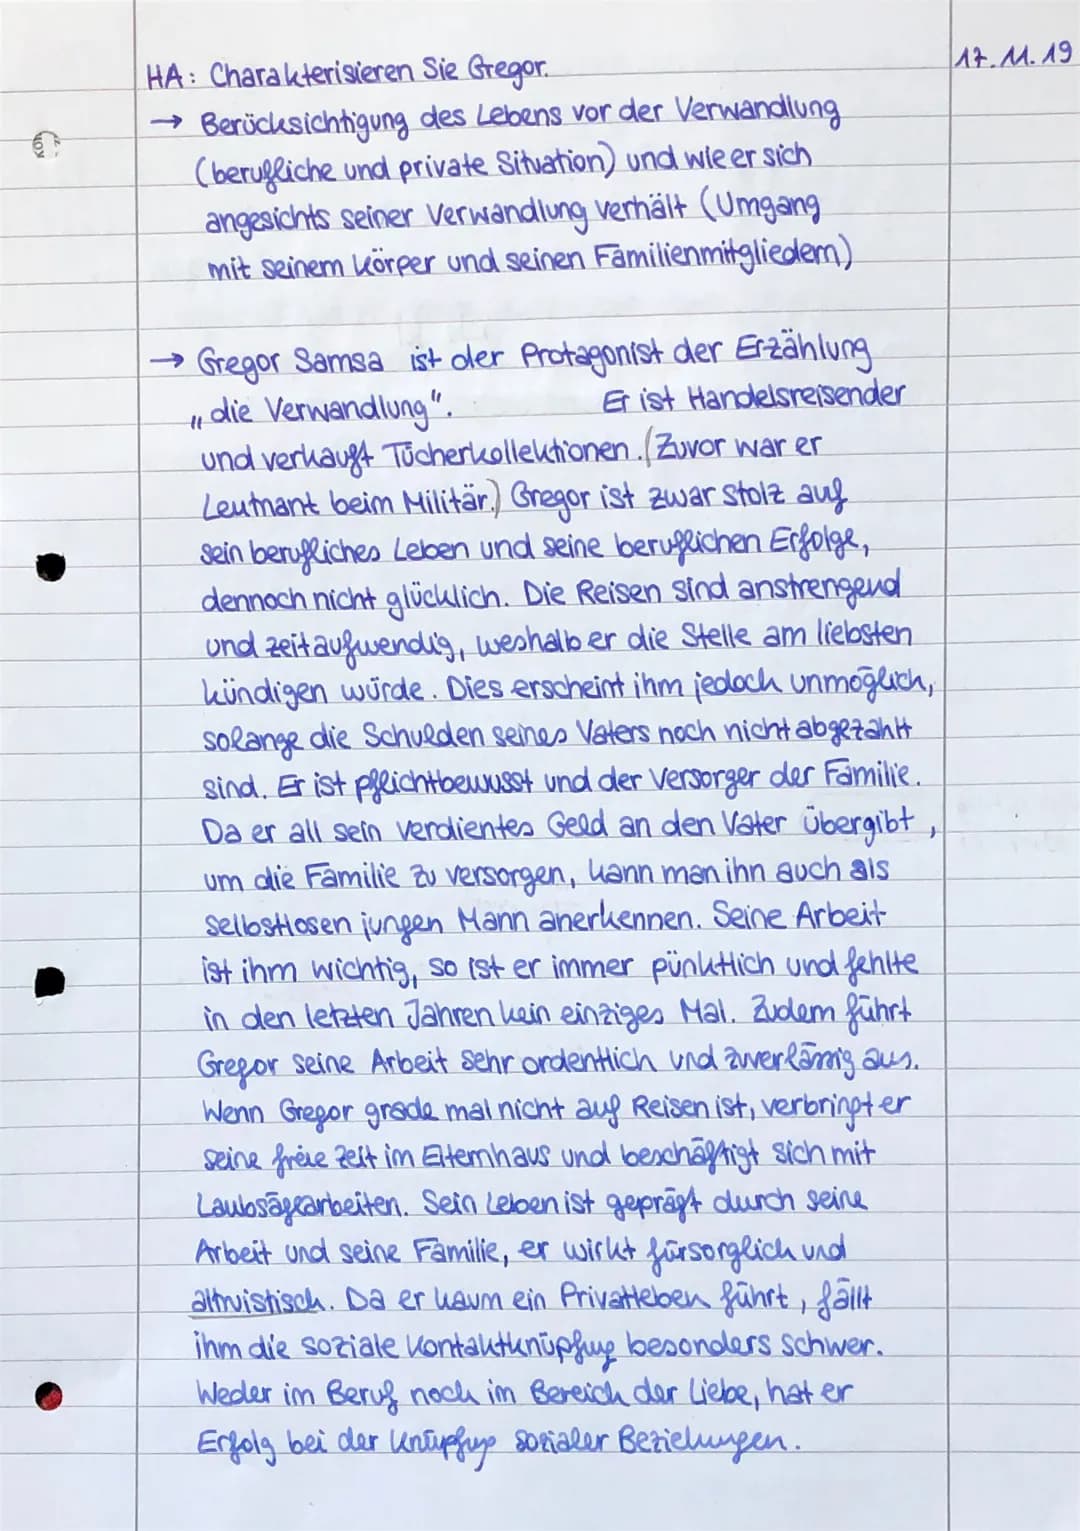 HA: Charakterisieren Sie Gregor.
17.11.19
→ Berücksichtigung des Lebens vor der Verwandlung
(berufliche und private Situation) und wie er sich
angesichts seiner Verwandlung verhält (Umgang
mit seinem Körper und seinen Familienmitgliedern)
→ Gregor Samsa ist der Protagonist der Erzählung
„die Verwandlung". Er ist Handelsreisender
und verkauft Tücherkollektionen. (Zuvor war er
Leutnant beim Militär.) Gregor ist zwar stolz auf
sein berufliches Leben und seine beruflichen Erfolge,
dennoch nicht glücklich. Die Reisen sind anstrengend
und zeitaufwendig, weshalb er die Stelle am liebsten
kündigen würde. Dies erscheint ihm jedoch unmöglich,
solange die Schulden seines Vaters noch nicht abgezahlt
sind. Er ist pflichtbewusst und der Versorger der Familie.
Da er all sein verdientes Geld an den Vater übergibt,
um die Familie zu versorgen, kann man ihn auch als
selbstlosen jungen Mann anerkennen. Seine Arbeit
ist ihm wichtig, so ist er immer pünktlich und fehlte
in den letzten Jahren kein einziges Mal. Zudem führt
Gregor seine Arbeit sehr ordentlich und zuverlässig aus.
Wenn Gregor grade mal nicht auf Reisen ist, verbringt er
seine freie Zeit im Elternhaus und beschäftigt sich mit
Laubsägearbeiten. Sein Leben ist geprägt durch seine
Arbeit und seine Familie, er wirkt fürsorglich und
altruistisch. Da er kaum ein Privatleben führt, fällt
ihm die soziale Kontaktknüpfung besonders schwer.
Weder im Beruf noch im Bereich der Liebe, hat er
Erfolg bei der Knüpfung sozialer Beziehungen.